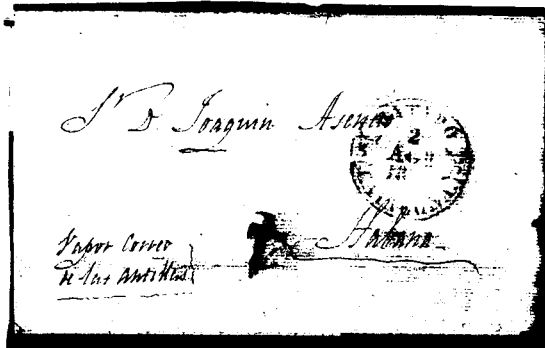 Sr D Joaquin Asencio
2
Habana
Vapor Correo
de las Antillas